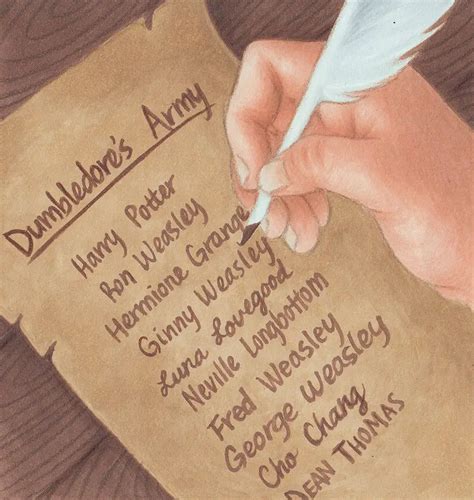 Dumbledore's Army
Harry Potter
Ron Weasley
Hermione Grange
Ginny Weasley
Luna Lovegood
Neville Longbottom
Fred Weasley
George Weasley
Cho Chang
DEAN THOMAS